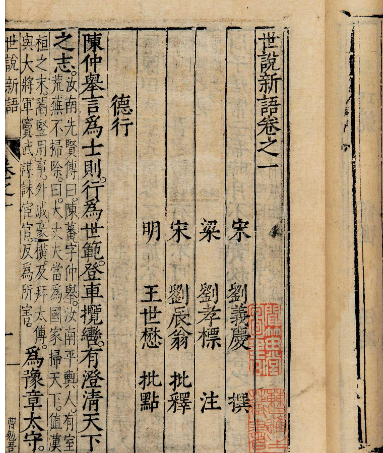 世說新語卷之一
宋 劉義慶 撰
梁 劉孝標 注
宋 劉辰翁 批釋
明 王世懋 批點
德行
陳仲舉言爲士則。行爲世範。登車攬轡。有澄清天下
之志。汝南先賢傳曰。陳蕃字仲舉。汝南平輿人。有室
荒蕪不掃除。曰。大丈夫當爲國家掃天下。值漢
桓之末。閹豎用事。外戚豪橫。及拜太傅。
與大將軍竇武謀誅宦官。反爲所害。
爲豫章太守。
世說新語 卷之一
一